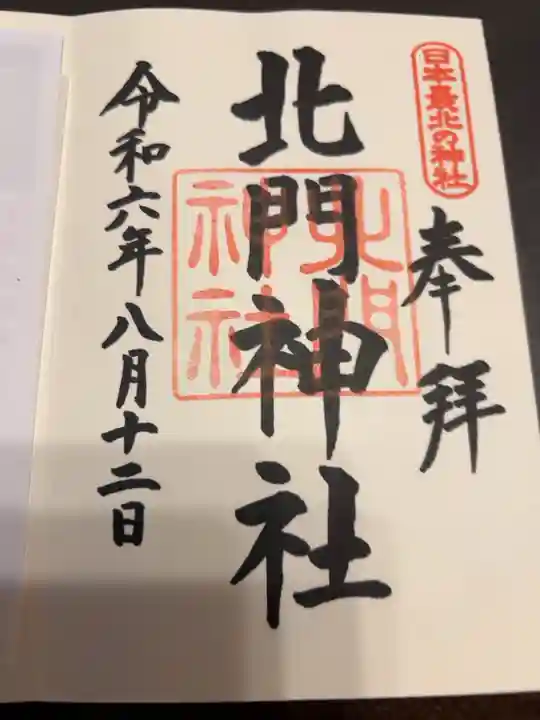 日本最北の神社
奉拝
北門神社
北門
神社
令和六年八月十二日